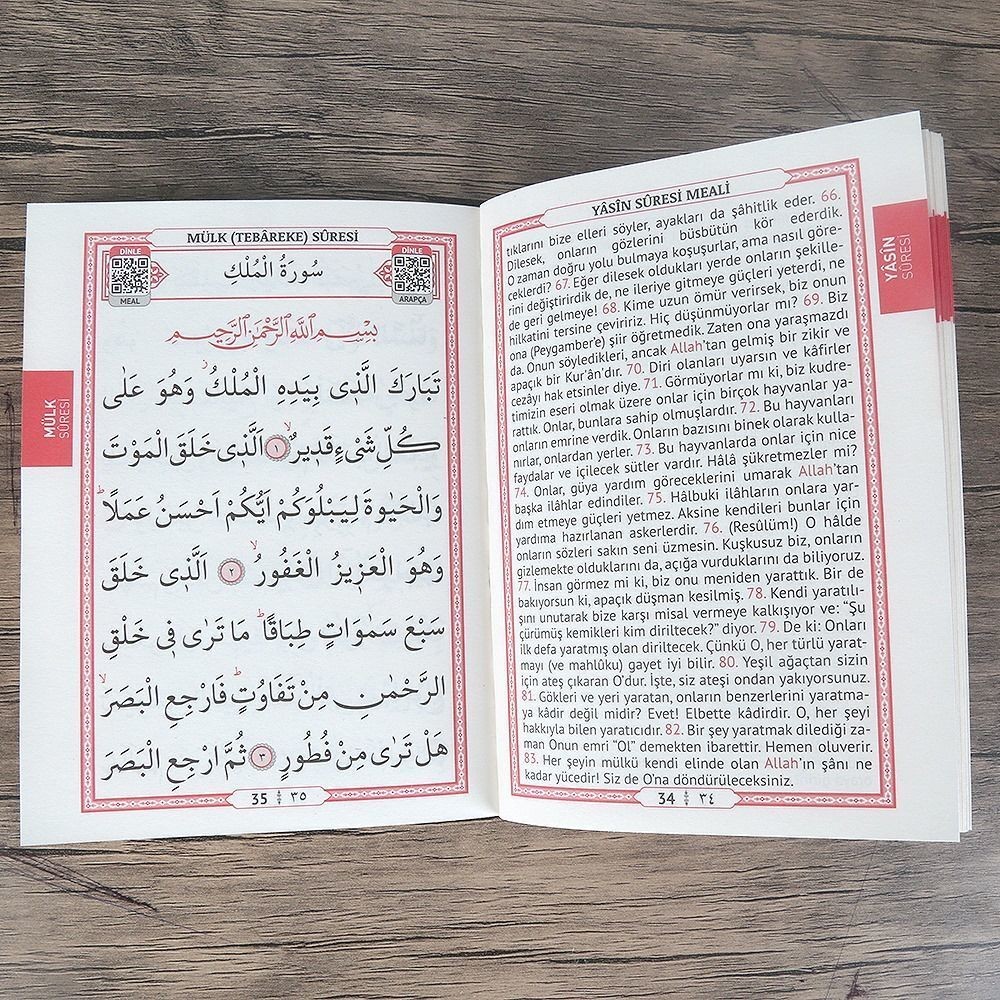 YÂSÎN SÛRESİ MEALİ
tıklarını bize elleri söyler, ayakları da şâhitlik eder. 66.
Dilesek, onların gözlerini büsbütün kör ederdik.
O zaman doğru yolu bulmaya koşuşurlar, ama nasıl göre-
ceklerdi? 67. Eğer dilesek oldukları yerde onların şekille-
rini değiştirirdik de, ne ileriye gitmeye güçleri yeterdi, ne
de geri gelmeye! 68. Kime uzun ömür verirsek, biz onun
hilkatini tersine çeviririz. Hiç düşünmüyorlar mı? 69. Biz
ona (Peygamber'e) şiir öğretmedik. Zaten ona yaraşmazdı
da. Onun söyledikleri, ancak Allah'tan gelmiş bir zikir ve
apaçık bir Kur'ân'dır. 70. Diri olanları uyarsın ve kâfirler
cezâyı hak etsinler diye. 71. Görmüyorlar mı ki, biz kudre-
timizin eseri olmak üzere onlar için birçok hayvanlar ya-
rattık. Onlar, bunlara sahip olmuşlardır. 72. Bu hayvanları
onların emrine verdik. Onların bazısını binek olarak kulla-
nırlar, onlardan yerler. 73. Bu hayvanlarda onlar için nice
faydalar ve içilecek sütler vardır. Hâlâ şükretmezler mi?
74. Onlar, güya yardım göreceklerini umarak Allah'tan
başka ilâhlar edindiler. 75. Hâlbuki ilâhların onlara yar-
dım etmeye güçleri yetmez. Aksine kendileri bunlar için
yardıma hazırlanan askerlerdir. 76. (Resûlüm!) O hâlde
onların sözleri sakın seni üzmesin. Kuşkusuz biz, onların
gizlemekte olduklarını da, açığa vurduklarını da biliyoruz.
77. İnsan görmez mi ki, biz onu meniden yarattık. Bir de
bakıyorsun ki, apaçık düşman kesilmiş. 78. Kendi yaratılı-
şını unutarak bize karşı misal vermeye kalkışıyor ve: "Şu
çürümüş kemikleri kim diriltecek?" diyor. 79. De ki: Onları
ilk defa yaratmış olan diriltecek. Çünkü O, her türlü yarat-
mayı (ve mahlûku) gayet iyi bilir. 80. Yeşil ağaçtan sizin
için ateş çıkaran O'dur. İşte, siz ateşi ondan yakıyorsunuz.
81. Gökleri ve yeri yaratan, onların benzerlerini yaratma-
ya kâdir değil midir? Evet! Elbette kâdirdir. O, her şeyi
hakkıyla bilen yaratıcıdır. 82. Bir şey yaratmak dilediği za-
man Onun emri "Ol" demekten ibarettir. Hemen oluverir.
83. Her şeyin mülkü kendi elinde olan Allah'ın şânı ne
kadar yücedir! Siz de O'na döndürüleceksiniz.
34 ٣٤
YÂSÎN
SÛRESİ
MÜLK (TEBÂREKE) SÛRESİ
DİNLE
MEAL
سُورَةُ الْمُلْكِ
DİNLE
ARAPÇA
بِسْمِ اللّٰهِ الرَّحْمٰنِ الرَّح۪يمِ
تَبَارَكَ الَّذ۪ي بِيَدِهِ الْمُلْكُۘ وَهُوَ عَلٰى
كُلِّ شَيْءٍ قَد۪يرٌۙ ﴿١﴾ اَلَّذ۪ي خَلَقَ الْمَوْتَ
وَالْحَيٰوةَ لِيَبْلُوَكُمْ اَيُّكُمْ اَحْسَنُ عَمَلًاۜ
وَهُوَ الْعَز۪يزُ الْغَفُورُۙ ﴿٢﴾ اَلَّذ۪ي خَلَقَ
سَبْعَ سَمٰوَاتٍ طِبَاقًاۜ مَا تَرٰى ف۪ي خَلْقِ
الرَّحْمٰنِ مِنْ تَفَاوُتٍۜ فَارْجِعِ الْبَصَرَۙ
هَلْ تَرٰى مِنْ فُطُورٍ ﴿٣﴾ ثُمَّ ارْجِعِ الْبَصَرَ
35 ٣٥
MÜLK
SÛRESİ